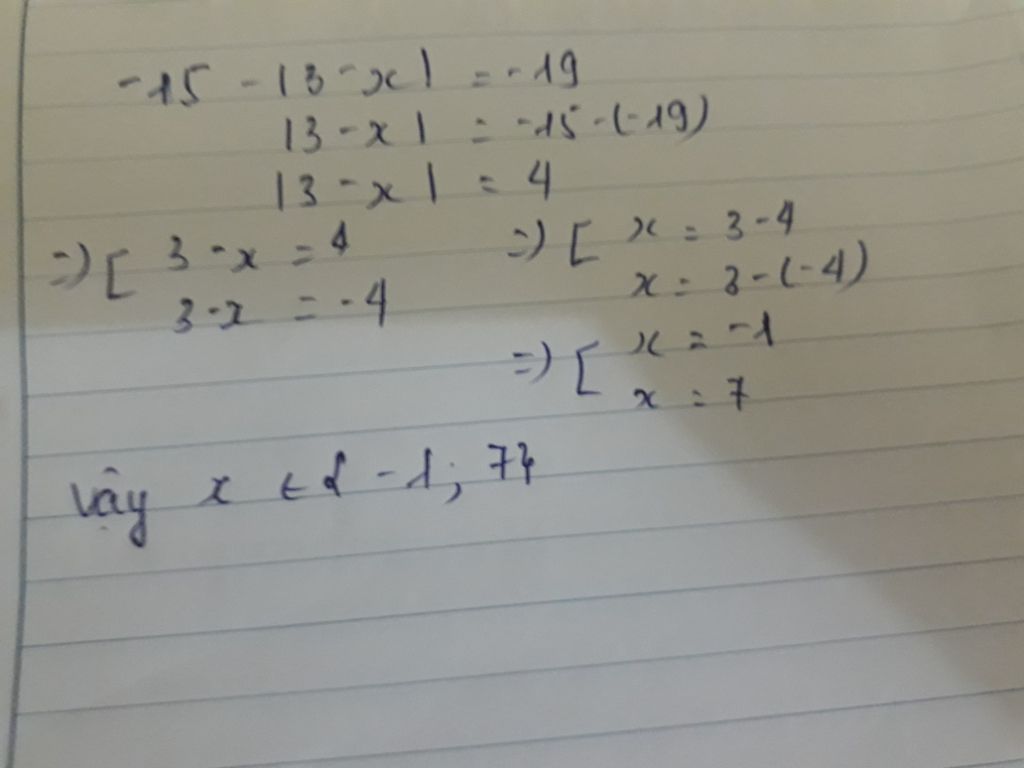 -15 - |3 - x| = -19
|3 - x| = -15 - (-19)
|3 - x| = 4
=) [ 3 - x = 4 =) [ x = 3 - 4
3 - x = -4 x = 3 - (-4)
=) [ x = -1
x = 7
Vậy x ∈ { -1; 7}